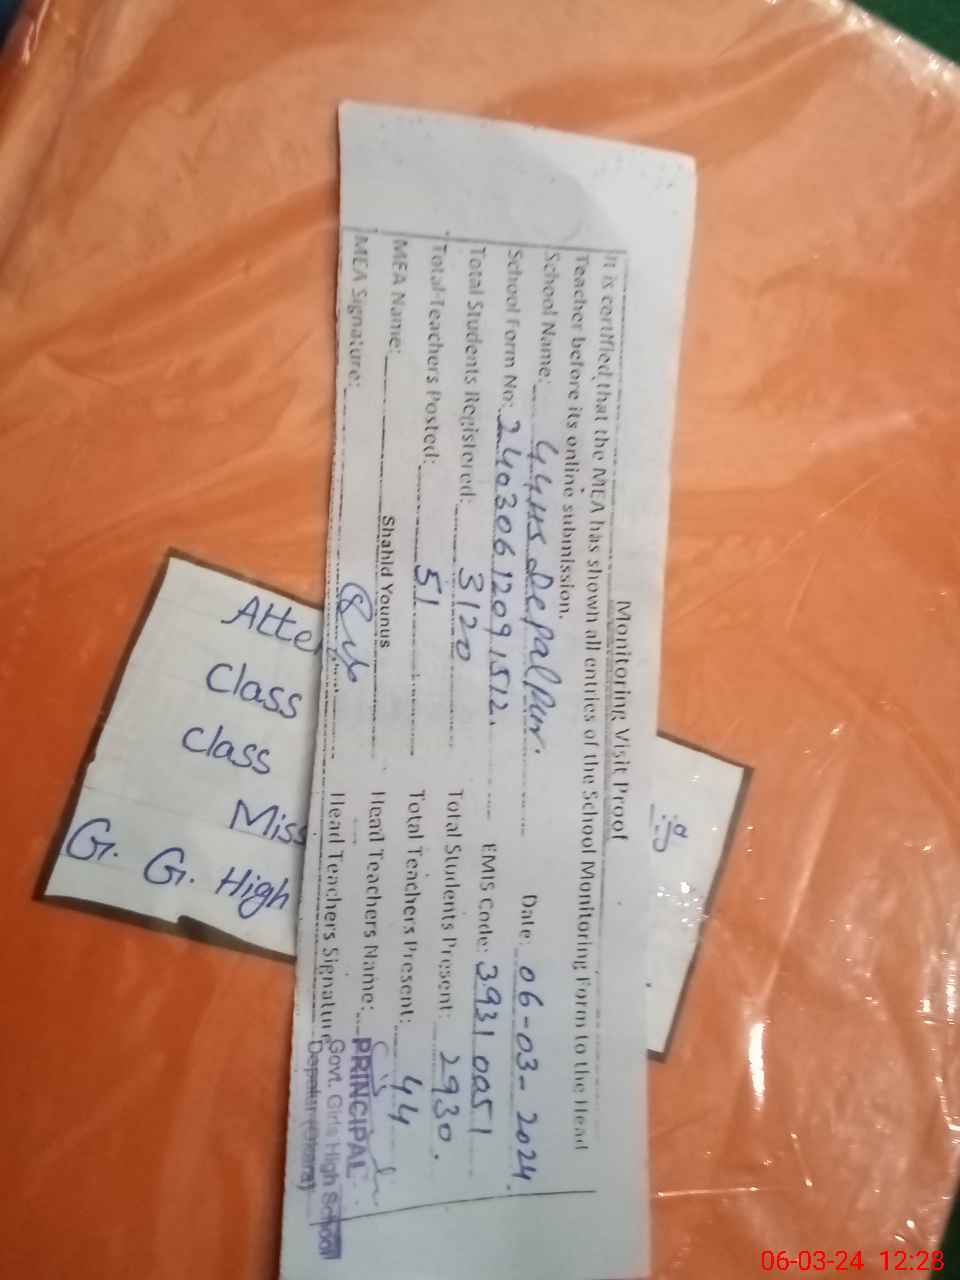 Monitoring Visit Proof
It is certified that the MEA has shown all entries of the School Monitoring Form to the Head
Teacher before its online submission.
School Name: GGHS Depalpur. Date: 06-03-2024.
School Form No: 24030612091512. EMIS Code: 39310051
Total Students Registered: 3120 Total Students Present: 2930.
Total Teachers Posted: 51 Total Teachers Present: 44
MEA Name: Shahid Younus Head Teachers Name:
MEA Signature: Head Teachers Signature
PRINCIPAL
Govt. Girls High School
Depalpur (Okara)
Atte
Class
Class
Miss
G. G. High
06-03-24 12:28